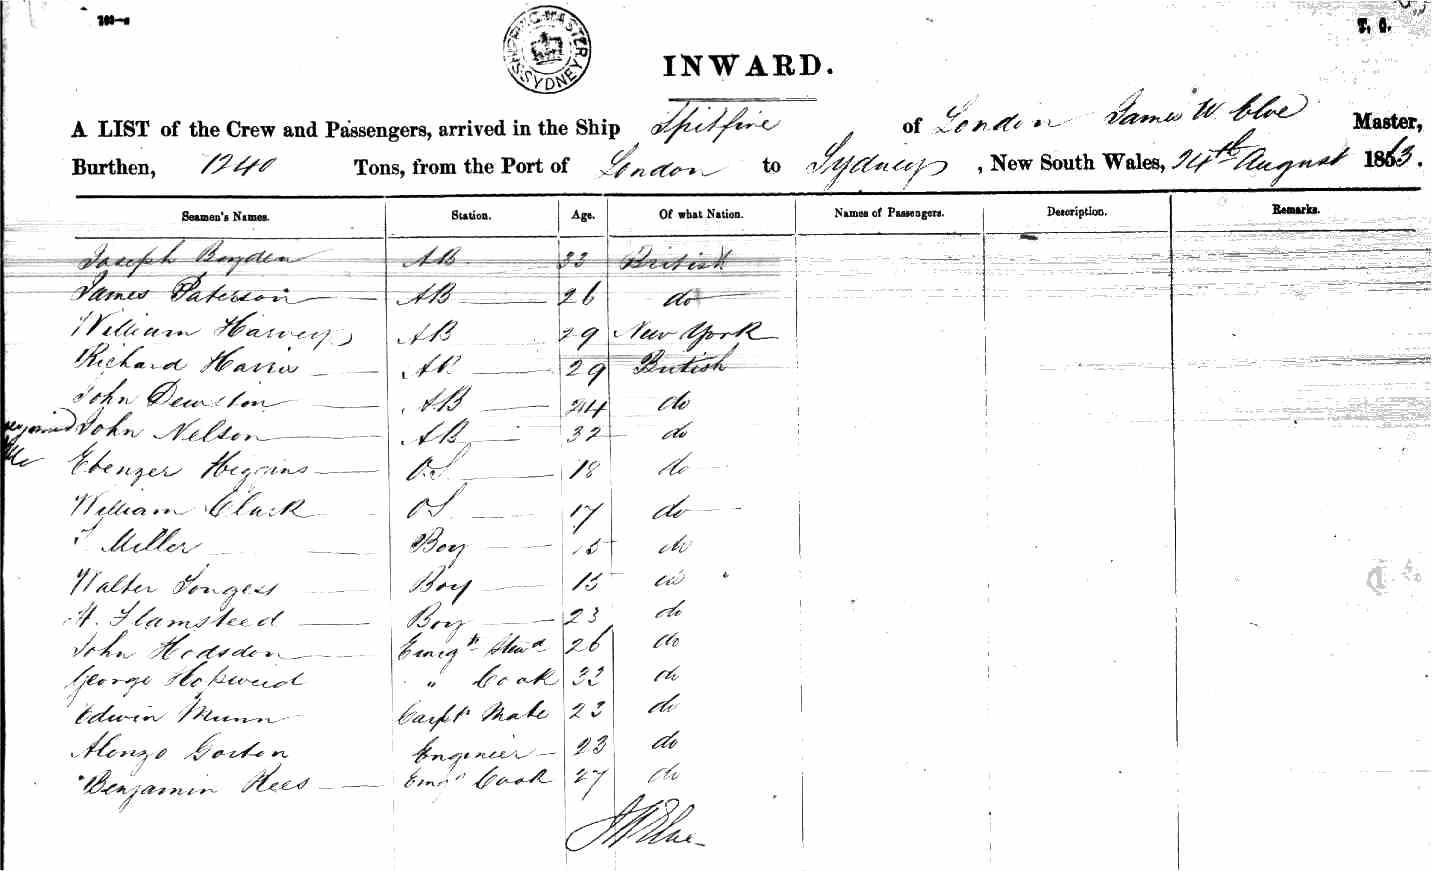 T. C.
SHIPPING MASTER SYDNEY
INWARD.
A LIST of the Crew and Passengers, arrived in the Ship Spitfire of London James W. Elvoe Master,
Burthen, 1240 Tons, from the Port of London to Sydney, New South Wales, 24th August 1863.
Seamen's Names. Station. Age. Of what Nation. Names of Passengers. Description. Remarks.
Joseph Boyden AB 33 British
James Paterson AB 26 do
William Harvey AB 29 New York
Richard Harris AB 29 British
John AB 24 do
John Nelson AB 32 do
Ebenzer Higgins OS 18 do
William Clark OS 17 do
Miller Boy 15 do
Walter Boy 15 do
H. Flamsteed Boy 23 do
John Hodsdon Emigts Stewd 26 do
George Hopwood " Cook 33 do
Edwin Munn Carptr Mate 23 do
Alonzo Gorton Engineer 23 do
Benjamin Rees Emgt Cook 27 do